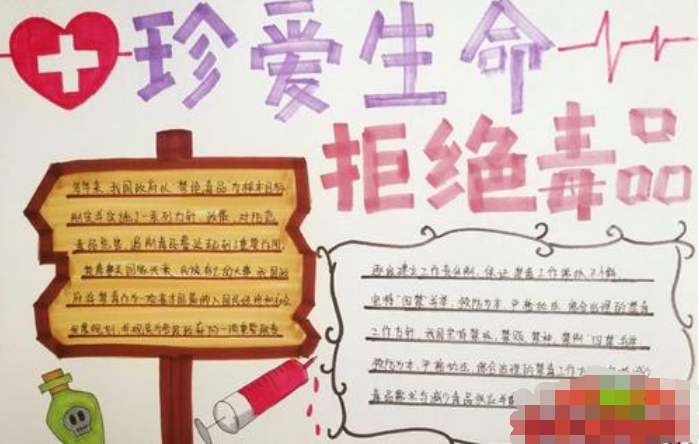 珍爱生命
拒绝毒品
多年来,我国政府以禁绝毒品为根本目标
制定并实施了一系列方针、政策,对防范
毒品危害、遏制毒品蔓延起到了重要作用,
禁毒事关国家兴衰、民族存亡的大事,我国政
府将禁毒作为一项
发展规划,
建立工作责任制,保证禁毒工作
坚持"四禁"并举、预防为本、严格执法、综合治理的禁毒
工作方针,我国实行禁吸、禁贩、禁种、禁制"四禁"并举
预防为本、严格执法、综合治理的禁毒工作方
毒品需求与减少毒品供应并